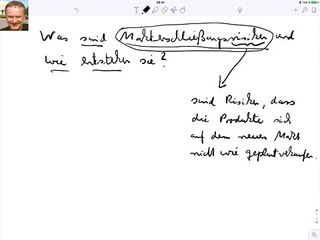 Was sind Markterschließungsrisiken und
wie entstehen sie?
sind Risiken, dass
die Produkte sich
auf dem neuen Markt
nicht wie geplant verkaufen.